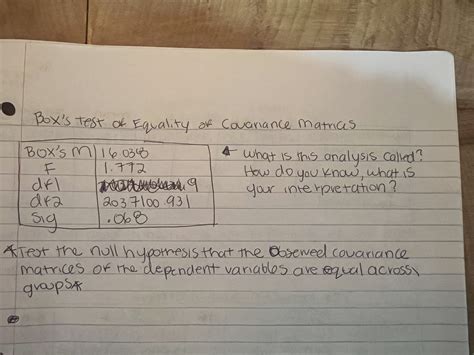 Box's Test of Equality of Covariance Matrices
Box's M 16.038
F 1.772
df1 9
df2 2037100.931
Sig .068
What is this analysis called?
How do you know, what is
your interpretation?
*Test the null hypothesis that the observed covariance
matrices of the dependent variables are equal across
groups*